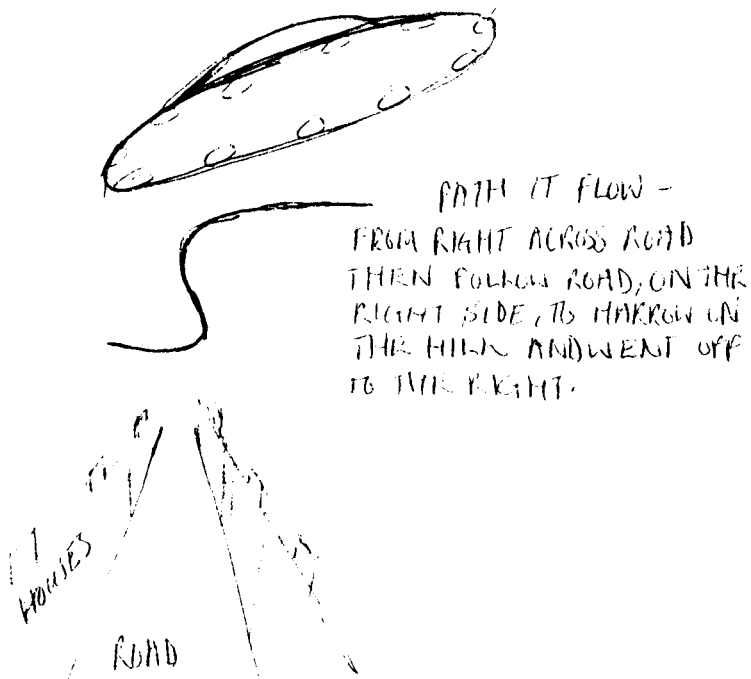 PATH IT FLOW -
FROM RIGHT ACROSS ROAD
THEN FOLLOW ROAD, ON THE
RIGHT SIDE, TO HARROW ON
THE HILL AND WENT OFF
TO THE RIGHT.
HOUSES
ROAD